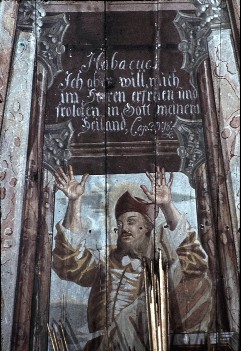 Habacuc
Ich aber will mich
im Herren erfreuen und
frolocken in Gott meinem
Heiland. Cap: 3